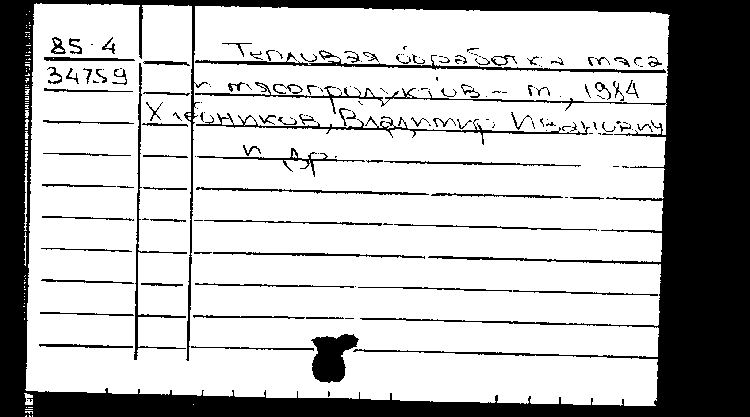 85.4
34759
Тепловая обработка мяса
и мясопродуктов. - М., 1984
Хлебников, Владимир Иванович
и др.